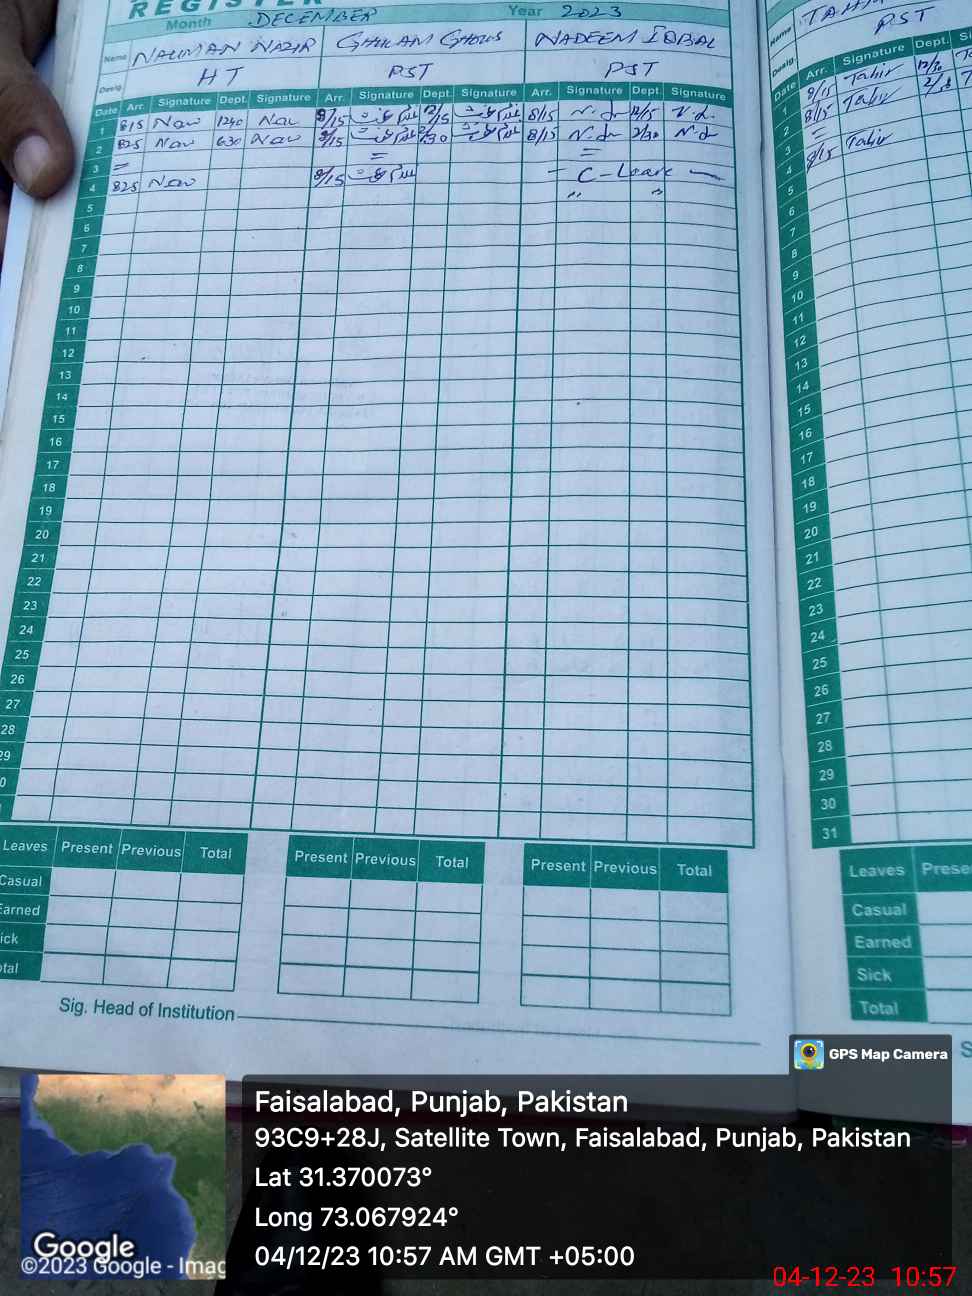 REGISTER
Month DECEMBER Year 2023
Name NAUMAN NAZIR GHULAM GHOUS NADEEM IQBAL
Desig. HT PST PST
Date Arr. Signature Dept. Signature Arr. Signature Dept. Signature Arr. Signature Dept. Signature
1 815 Nau 1240 Nau 8/15 12/15 8/15 N.dr 12/15 N.d
2 825 Nau 630 Nau 8/15 8/15 N.dr 2/30 N.d
3 = = =
4 825 Nau 8/15 – C-Leave —
5 " "
6
7
8
9
10
11
12
13
14
15
16
17
18
19
20
21
22
23
24
25
26
27
28
29
Leaves Present Previous Total Present Previous Total Present Previous Total
Casual
Earned
Sig. Head of Institution
Name TAHI
Desig. PST
Date Arr. Signature Dept.
1 8/15 Tahir 12/30
2 8/15 Tahir
3 =
4 8/15 Tahir
5
6
7
8
9
10
11
12
13
14
15
16
17
18
19
20
21
22
23
24
25
26
27
28
29
30
31
Leaves
Casual
Earned
Sick
Total
GPS Map Camera
Faisalabad, Punjab, Pakistan
93C9+28J, Satellite Town, Faisalabad, Punjab, Pakistan
Lat 31.370073°
Long 73.067924°
04/12/23 10:57 AM GMT +05:00
Google
©2023 Google - Imag
04-12-23 10:57